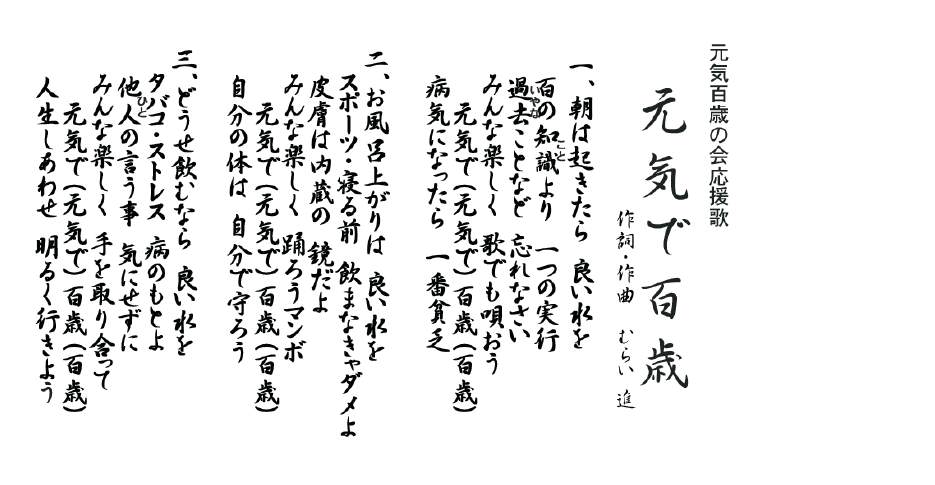 元気百歳の会応援歌
元気で百歳
作詞・作曲 むらい 進
一、朝は起きたら 良い水を
百の知識より 一つの実行
過去ことなど 忘れなさい
みんな楽しく 歌でも唄おう
元気で(元気で)百歳(百歳)
病気になったら 一番貧乏
二、お風呂上がりは 良い水を
スポーツ・寝る前 飲まなきゃダメよ
皮膚は内蔵の 鏡だよ
みんな楽しく 踊ろうマンボ
元気で(元気で)百歳(百歳)
自分の体は 自分で守ろう
三、どうせ飲むなら 良い水を
タバコ・ストレス 病のもとよ
他人の言う事 気にせずに
みんな楽しく 手を取り合って
元気で(元気で)百歳(百歳)
人生しあわせ 明るく行きよう